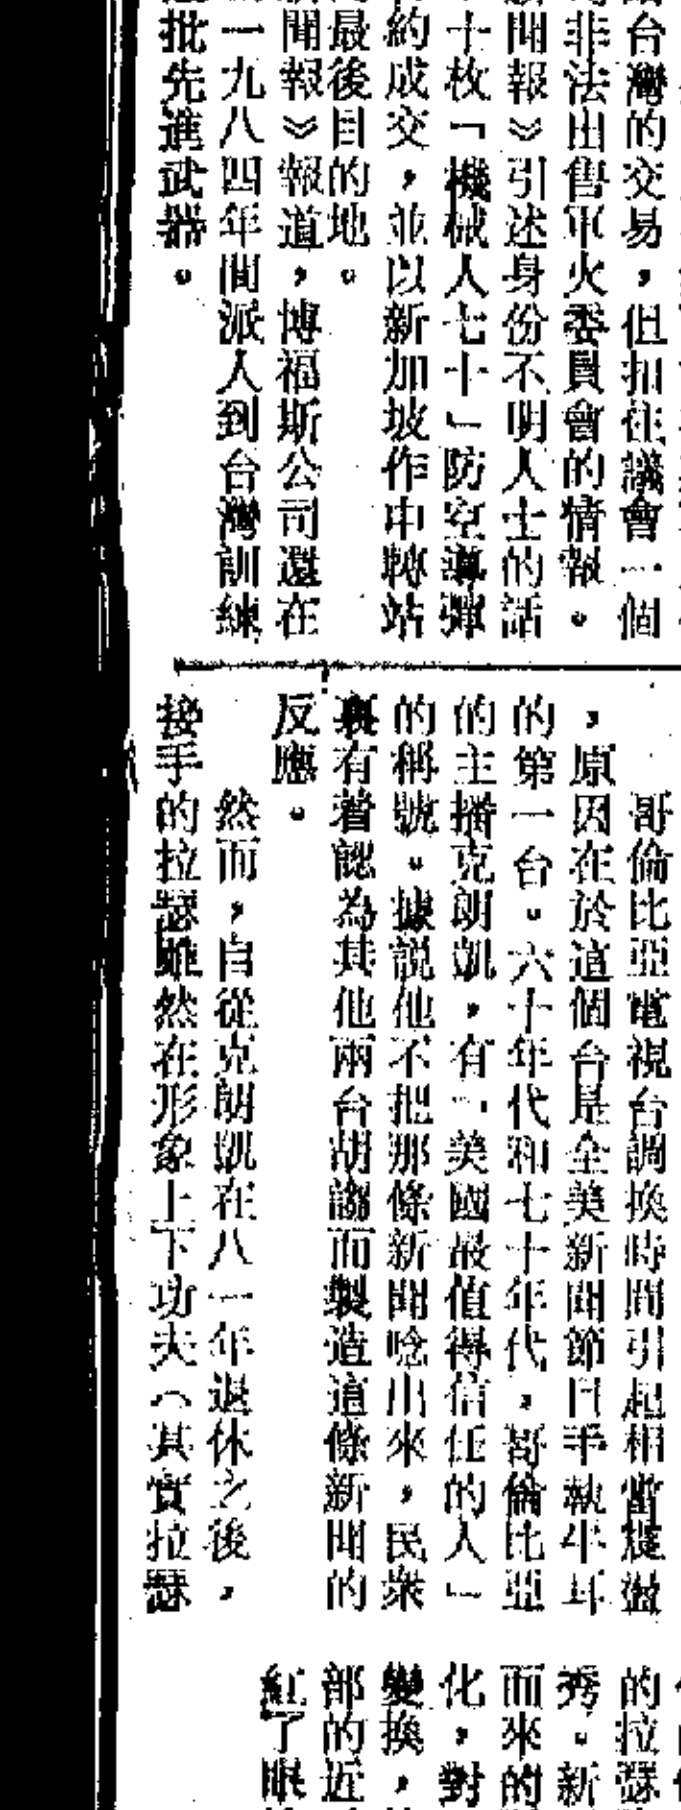 台灣的交易，但扣住議會一個
非法出售軍火委員會的情報。
聞報》引述身份不明人士的話
十枚「機械人七十」防空導彈
約成交，並以新加坡作中轉站
最後目的地。
聞報》報道，博福斯公司還在
一九八四年間派人到台灣訓練
批先進武器。
哥倫比亞電視台調換時間引起相當震盪
，原因在於這個台是全美新聞節目手執牛耳
的第一台。六十年代和七十年代，哥倫比亞
的主播克朗凱，有「美國最值得信任的人」
的稱號。據說他不把那條新聞唸出來，民衆
裏有着認為其他兩台胡謅而製造這條新聞的
反應。
然而，自從克朗凱在八一年退休之後，
接手的拉瑟雖然在形象上下功夫（其實拉瑟
的拉瑟
秀。新
而來的
化，對
變換，
部的近
紅了眼